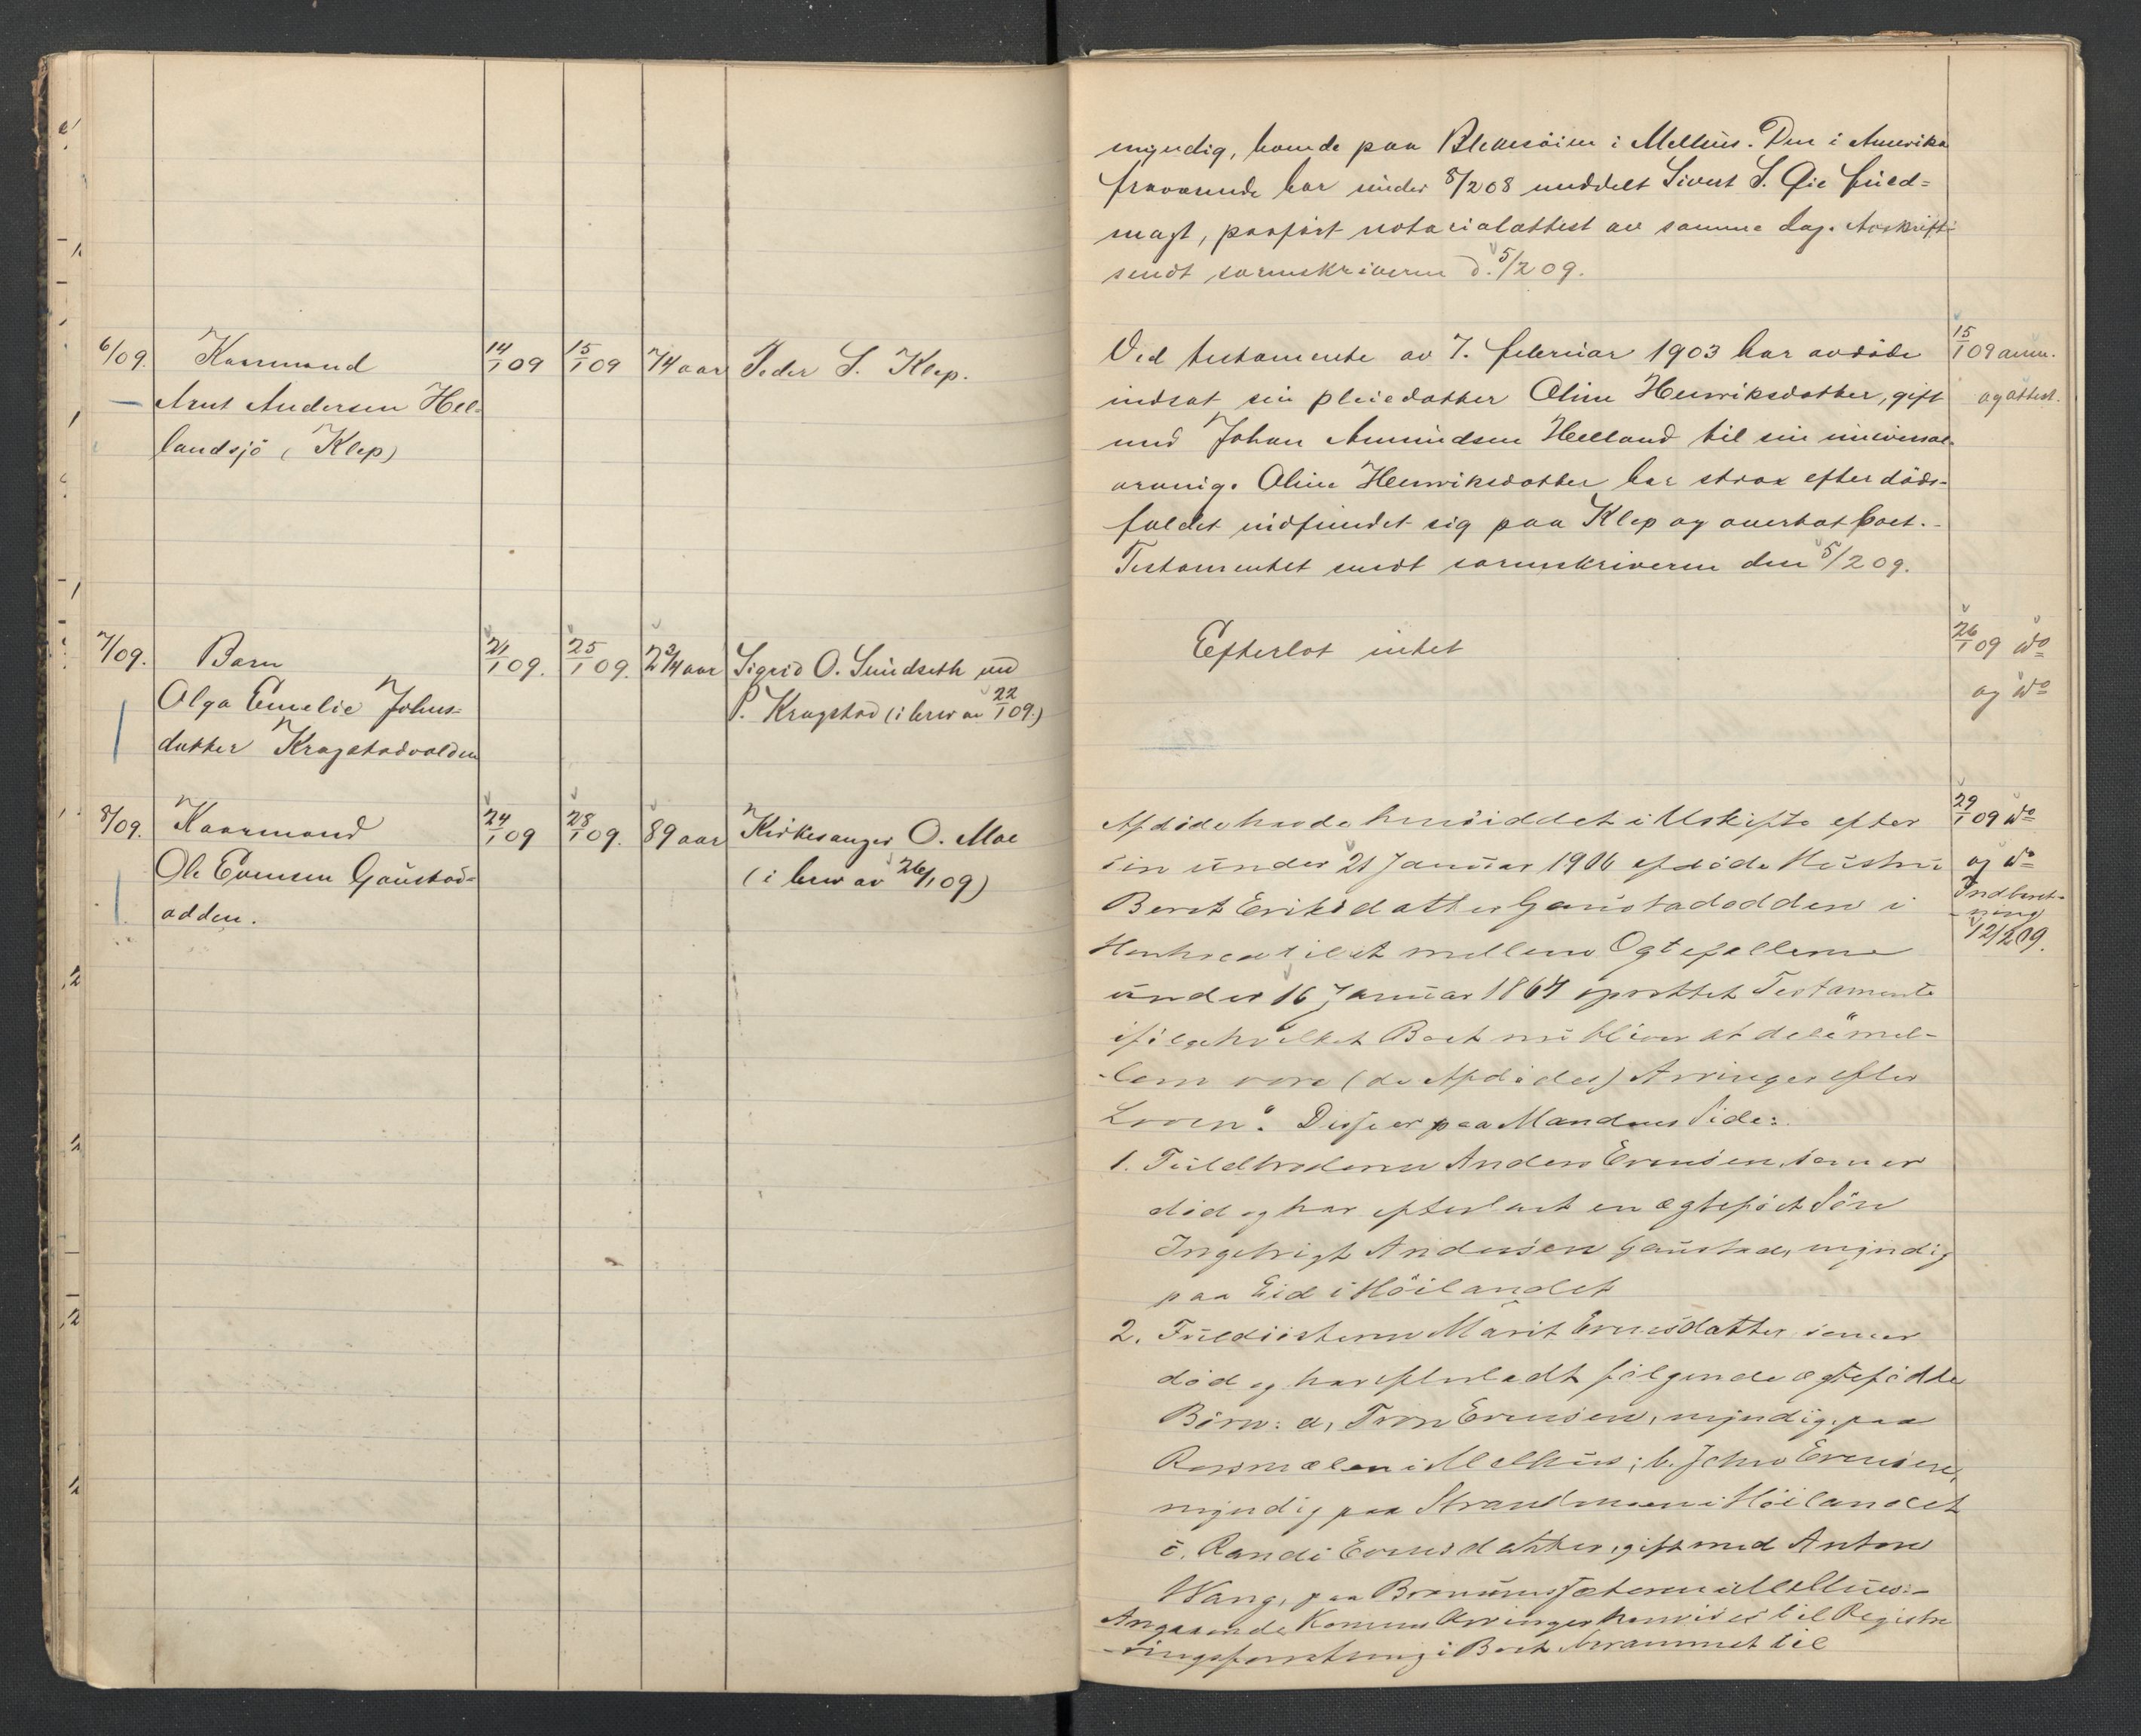 6/09.
Kaarmand
Arnt Andersen Hel-
landsjö (Klep)
14/1 09
15/1 09
74 aar
Peder S. Klep.
7/09.
Barn
Olga Emelie Johns-
datter Kragstadvolden
21/1 09.
25/1 09.
2 3/4 aar
Sigrid O. Sundseth ved
P. Kragstad (i brev av 22/1 09.)
8/09.
Kaarmand
Ole Evensen Gaustad-
odden.
24/1 09
28/1 09.
89 aar
Kirkesanger O. Moe
(i brev av 26/1 09)
myndig, boende paa Blekesöien i Melhus. Den i Amerika
fraværende har under 8/2 08 meddelt Sivert S. Øie fuld-
magt, paaført notarialattest av samme dag. Avskrift
sendt sorenskriveren d. 5/2 09.
Ved testamente av 7. februar 1903 har avdöde
indsat sin pleiedatter Oline Henriksdatter, gift
med Johan Amundsen Helland til sin universal-
arving. Oline Henriksdatter har strax efter döds-
faldet indfundet sig paa Klep og overtat boet.-
Testamentet sendt sorenskriveren den 5/2 09.
15/1 09 anm.
og attest.
Efterlot intet
26/1 09 do
og do
Afdöde havde hensiddet i Uskifte efter
sin under 21 Januar 1906 afdöde Hustru
Beret Eriksdatter Gaustadodden i
Henhold til et mellem Ægtefellerne
under 16 Januar 1864 oprettet Testamente
ifölge hvilket Boet nu bliver at dele "mel-
lem vore (de Afdödes) Arvinger efter
Loven". Disse er paa Mandens Side:
1. Fuldbroderen Anders Evensen, som er
död og har efterladt en ægteföd Sön
Ingebrigt Andersen Gaustad, myndig
paa Eid i Höilandet
2. Fuldsösteren Marit Evensdatter som er
död og har efterladt fölgende ægtefödte
Börn: a, Tron Evensen, myndig, paa
Rosmælen i Melhus; b. John Evensen,
myndig paa Strandmoen i Höilandet
c. Randi Evensdatter, gift med Anton
Wang, paa i Melhus.-
Angaaende Konens Arvinger henvises til Registre-
ringsforretning i Boet fremmet til
29/1 09 do
og do
Indberet-
ning
12/2 09.